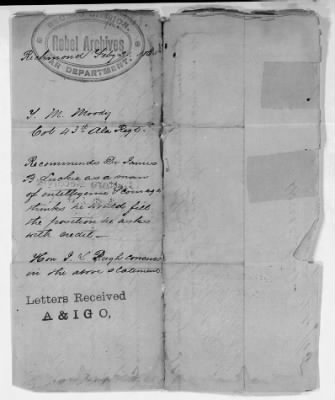 RECORD DIVISION,
Rebel Archives
WAR DEPARTMENT.
Richmond Feby
Y. M. Moody
Col 43rd Ala Regt.
Recommends Dr James
B Luckie as a man
of intelligence &
thinks he would fill
the position he asks
with credit.—
Hon J L Pugh concurs
in the above statement
Letters Received
A & I G O,